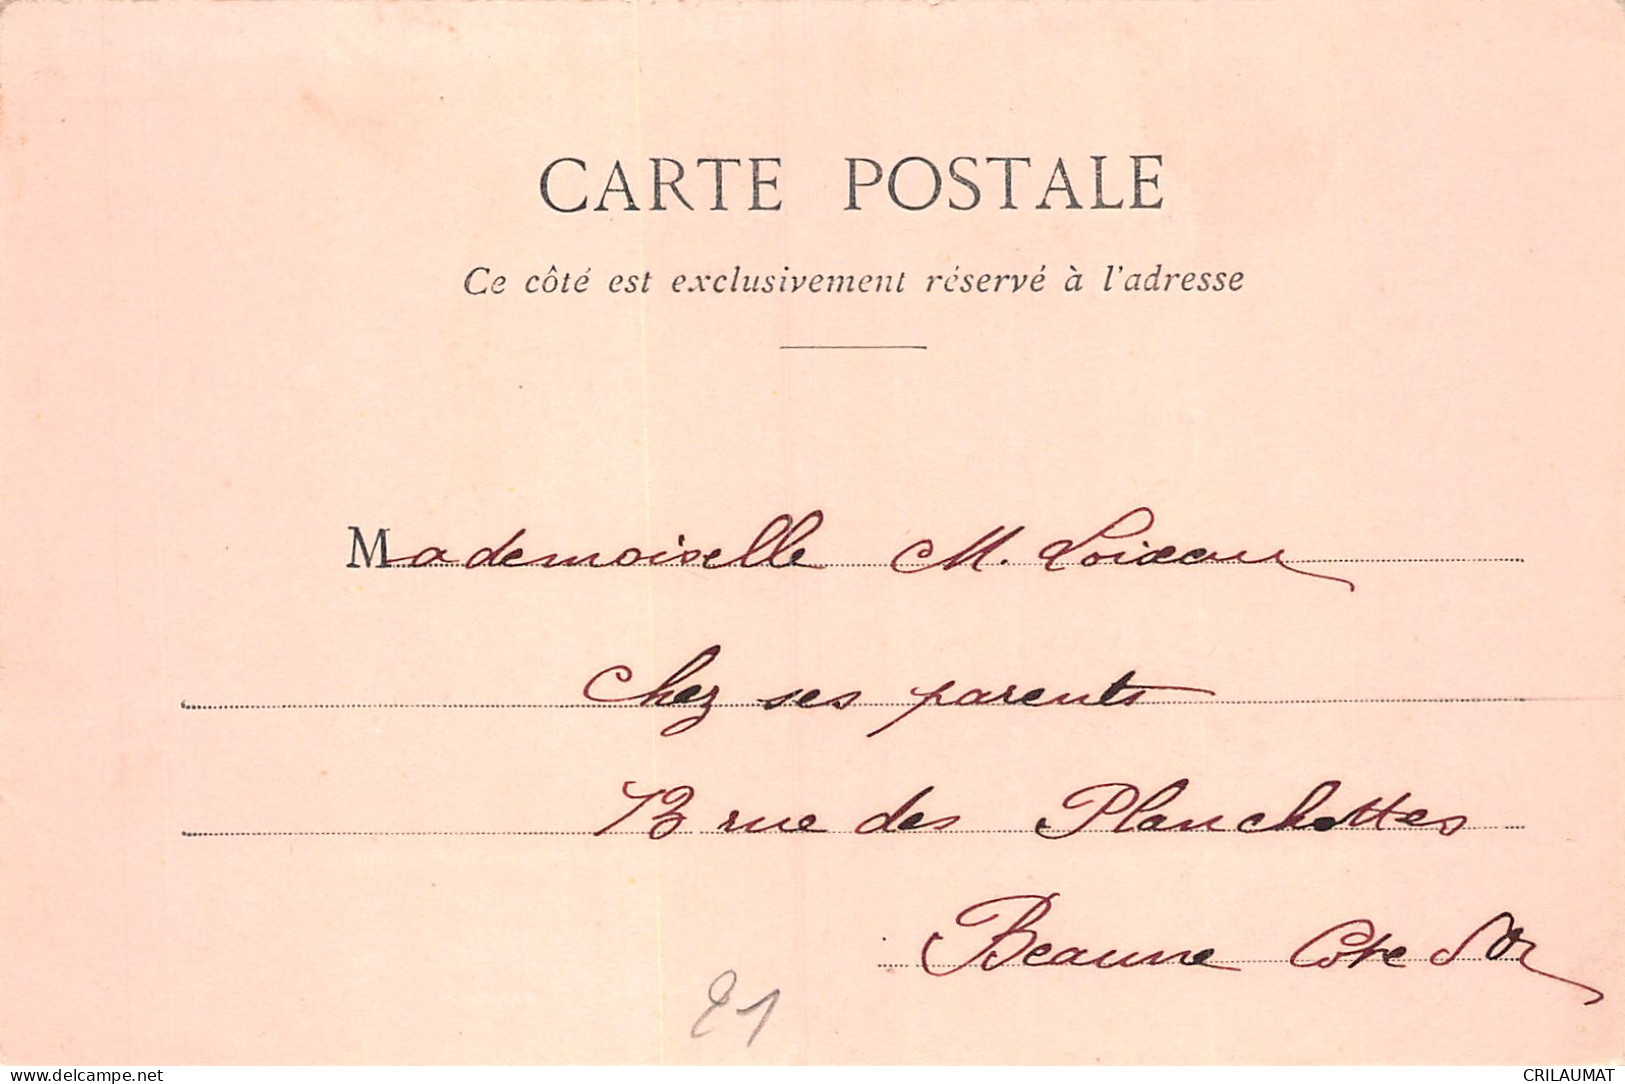 CARTE POSTALE
Ce côté est exclusivement réservé à l'adresse
Mademoiselle M. Loizeau
chez ses parents
13 rue des Planchettes
Beaune Côte d'Or
21
www.delcampe.net
CRILAUMAT